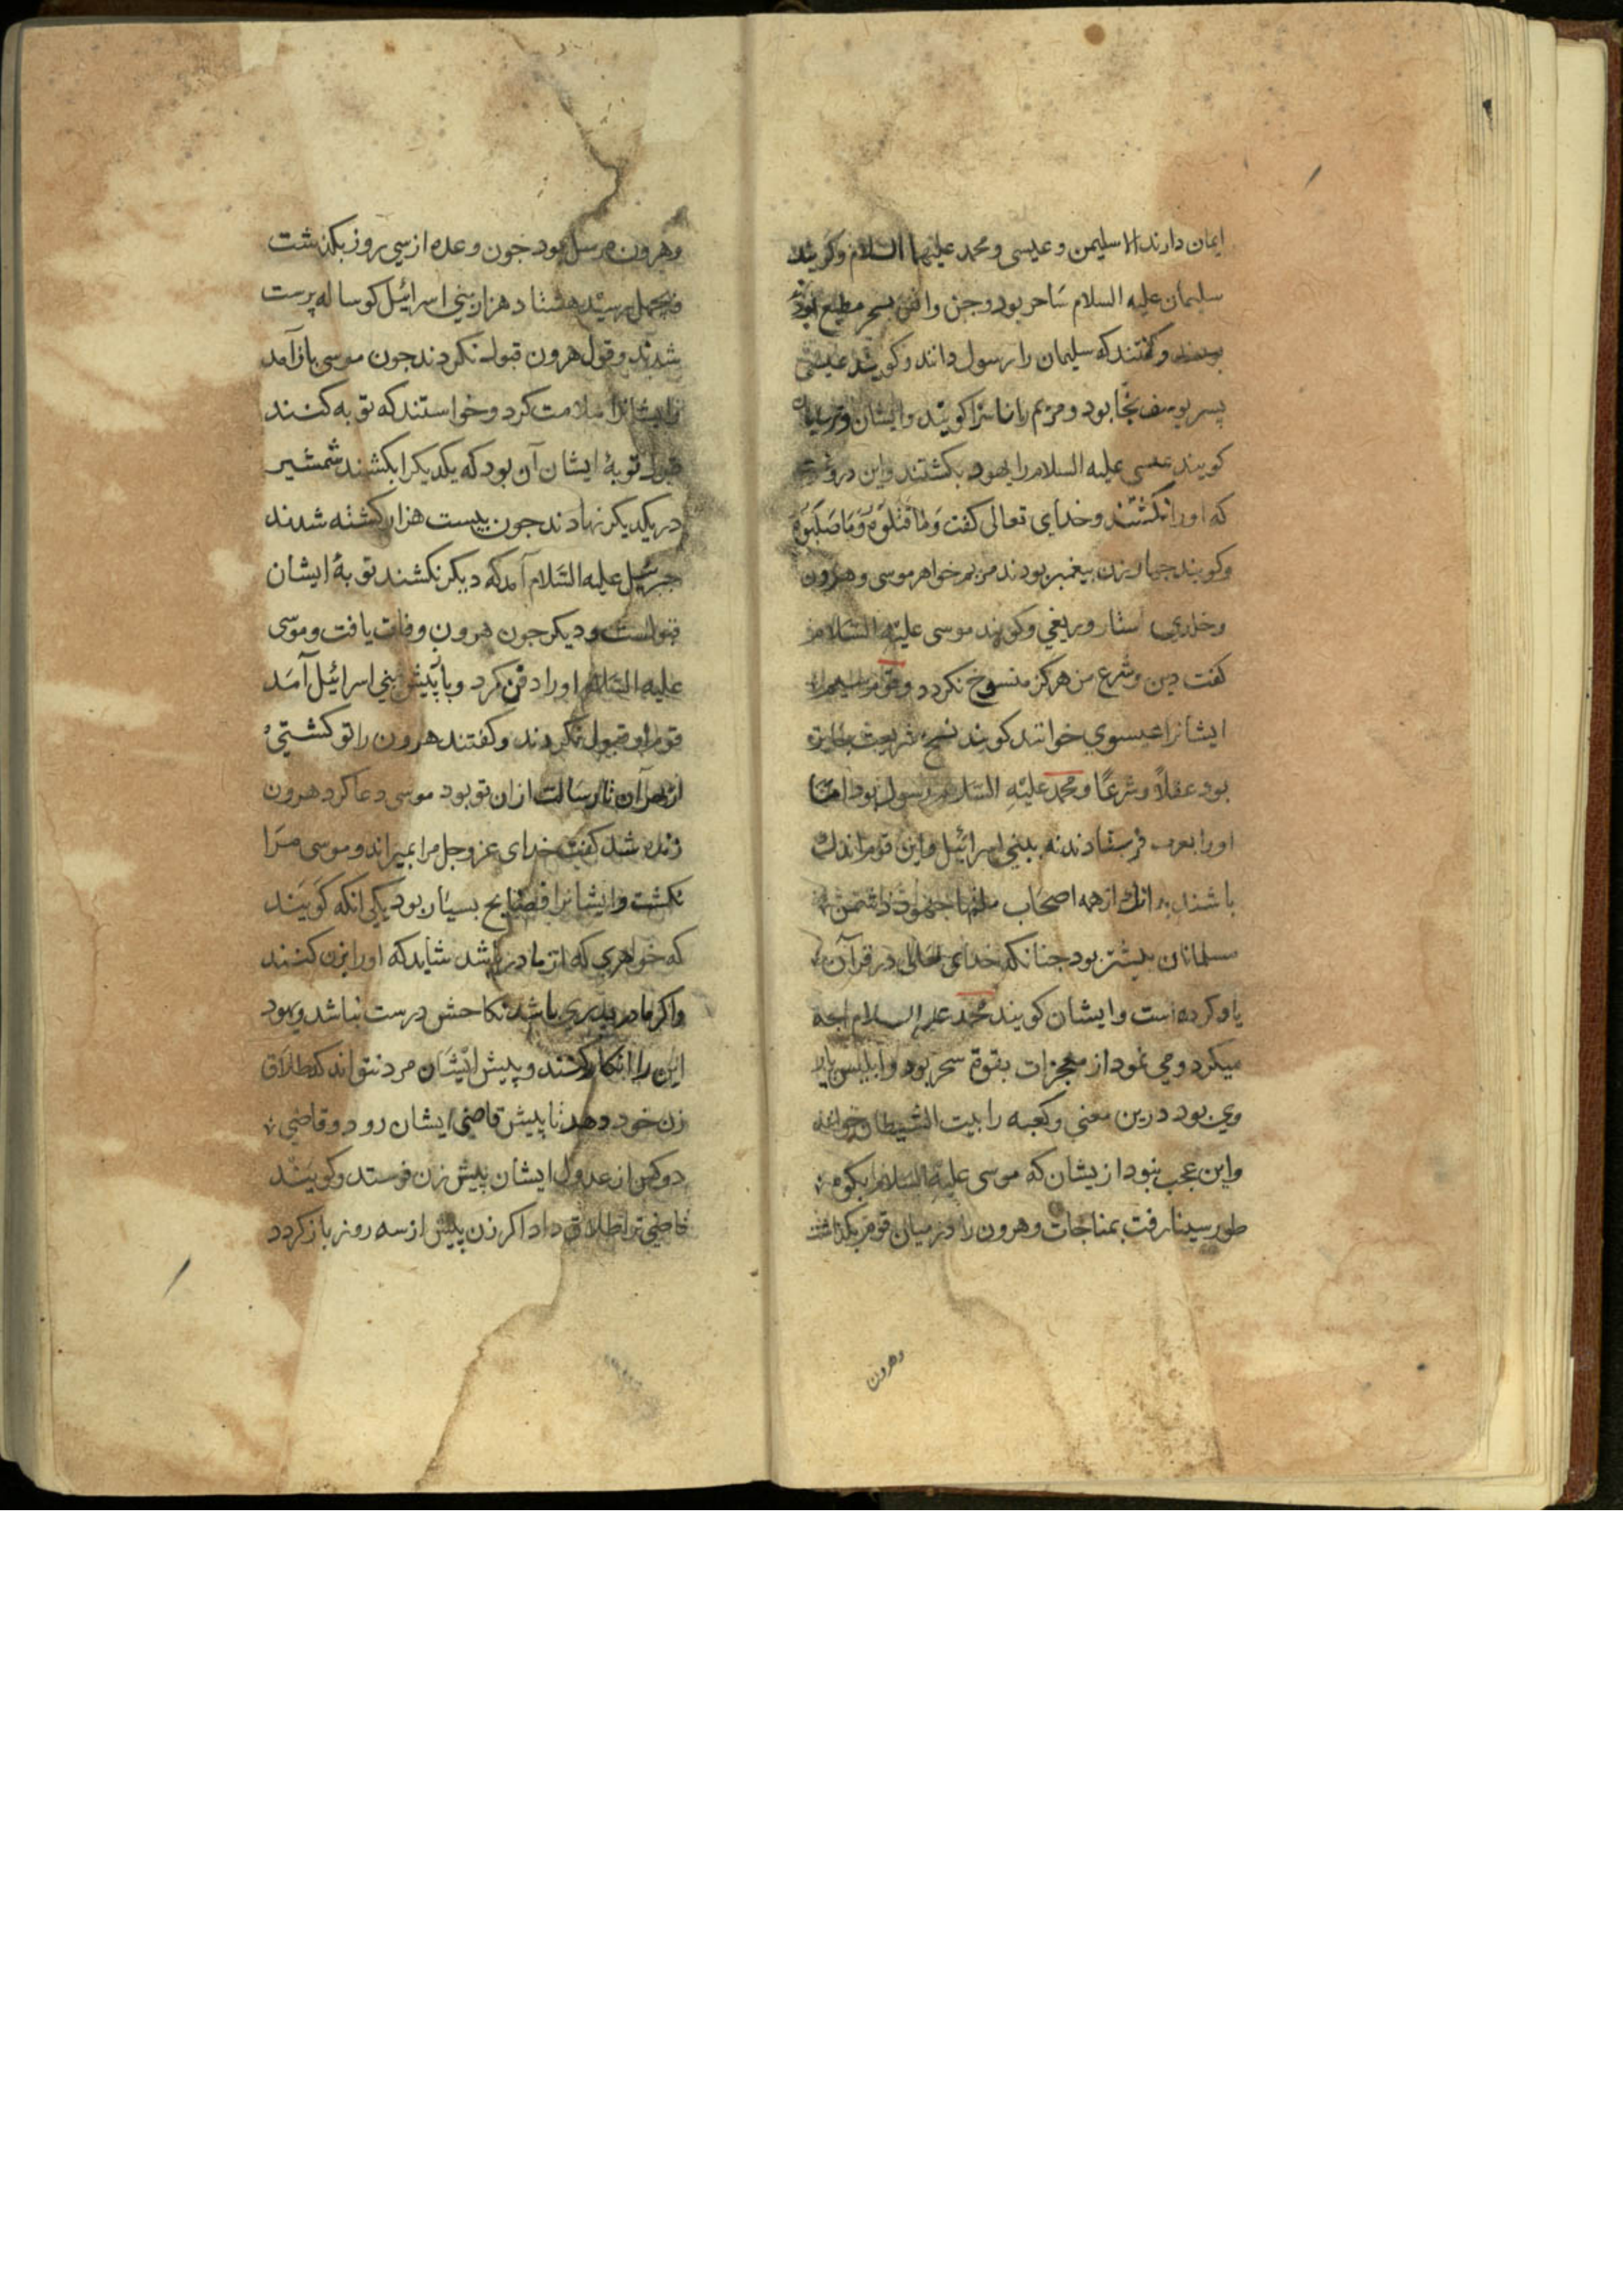 ایمان دارند الا سلیمن و عیسی و محمد علیهما السلام و کویند
سلیمان علیه السلام ساحر بود و جن و انس بسحر مطیع بودند
و کفتند که سلیمان را رسول دانند و کویند عیسی
پسر یوسف نجا بود و مریم را ناسزا کویند و ایشان و ترسایان
کویند عیسی علیه السلام را یهود بکشتند و این دروغست
که او را نکشتند و خدای تعالی کفت وَمَا قَتَلُوهُ وَمَا صَلَبُوهُ
و کویند جهار زن پیغمبر بودند مریم خواهر موسی و هرون
و خلدی و کویند موسی علیه السلام
کفت دین و شرع من هرکز منسوخ نکردد و قومی
ایشانرا عیسوی خوانند کویند نسخ شریعت جایز
بود عقلاً و شرعًا و محمد علیه السلام رسول بود اما
او را بعرب فرستادند نه ببنی اسرائیل و این قوم اندک
باشند بدانک از همه اصحاب ملتها جهود دشمن
مسلمانان بیشتر بود جنانکه خدای تعالی در قرآن
یاد کرده است و ایشان کویند محمد علیه السلام انچه
میکرد و می نمود از معجزات بقوة سحر بود و ابلیس یار
وی بود درین معنی و کعبه را بیت الشیطان خوانند
و این عجب نبود از یشان که موسی علیه السلام بکوه
طور سینا رفت بمناجات و هرون را در میان قوم بکذاشت
وهرون
و هرون مرسل بود جون وعده از سی روز بکذشت
و بجهل رسید هشتاد هزار بنی اسرائیل کوساله پرست
شدند و قول هرون قبول نکردند جون موسی باز آمد
و ایشانرا ملامت کرد و خواستند که توبه کنند
قبول توبهٔ ایشان آن بود که یکدیکر را بکشند شمشیر
در یکدیکر نهادند جون بیست هزار کشته شدند
جبرئیل علیه السلام آمد که دیکر نکشند توبهٔ ایشان
قبولست و دیکر جون هرون وفات یافت و موسی
علیه السلام او را دفن کرد و با پیش بنی اسرائیل آمد
قوم او قبول نکردند و کفتند هرون را تو کشتی
از بهر آن تا رسالت ازان تو بود موسی دعا کرد هرون
زنده شد کفت خدای عز و جل مرا بمیراند و موسی مرا
نکشت و ایشانرا فضایح بسیار بود یکی انکه کویند
که خواهری که از مادر باشد شاید که او را بزن کنند
و اکر مادر پدری باشد نکاحش درست نباشد و یهود
این را انکار کنند و پیش ایشان مرد نتواند که طلاق
زن خود دهد تا پیش قاضی ایشان رود و قاضی
دو کس از عدول ایشان پیش زن فرستد و کویند
قاضی ترا طلاق داد اکر زن پیش از سه روز باز کردد